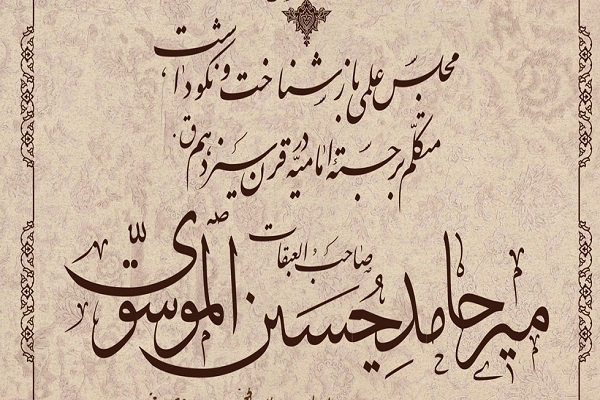 مجلس علمی بازشناخت و نکوداشت
متکلم برجستهٔ امامیه در قرن سیزدهم ق.
صاحب العبقات
میر حامدِ حُسَین الموسوّی